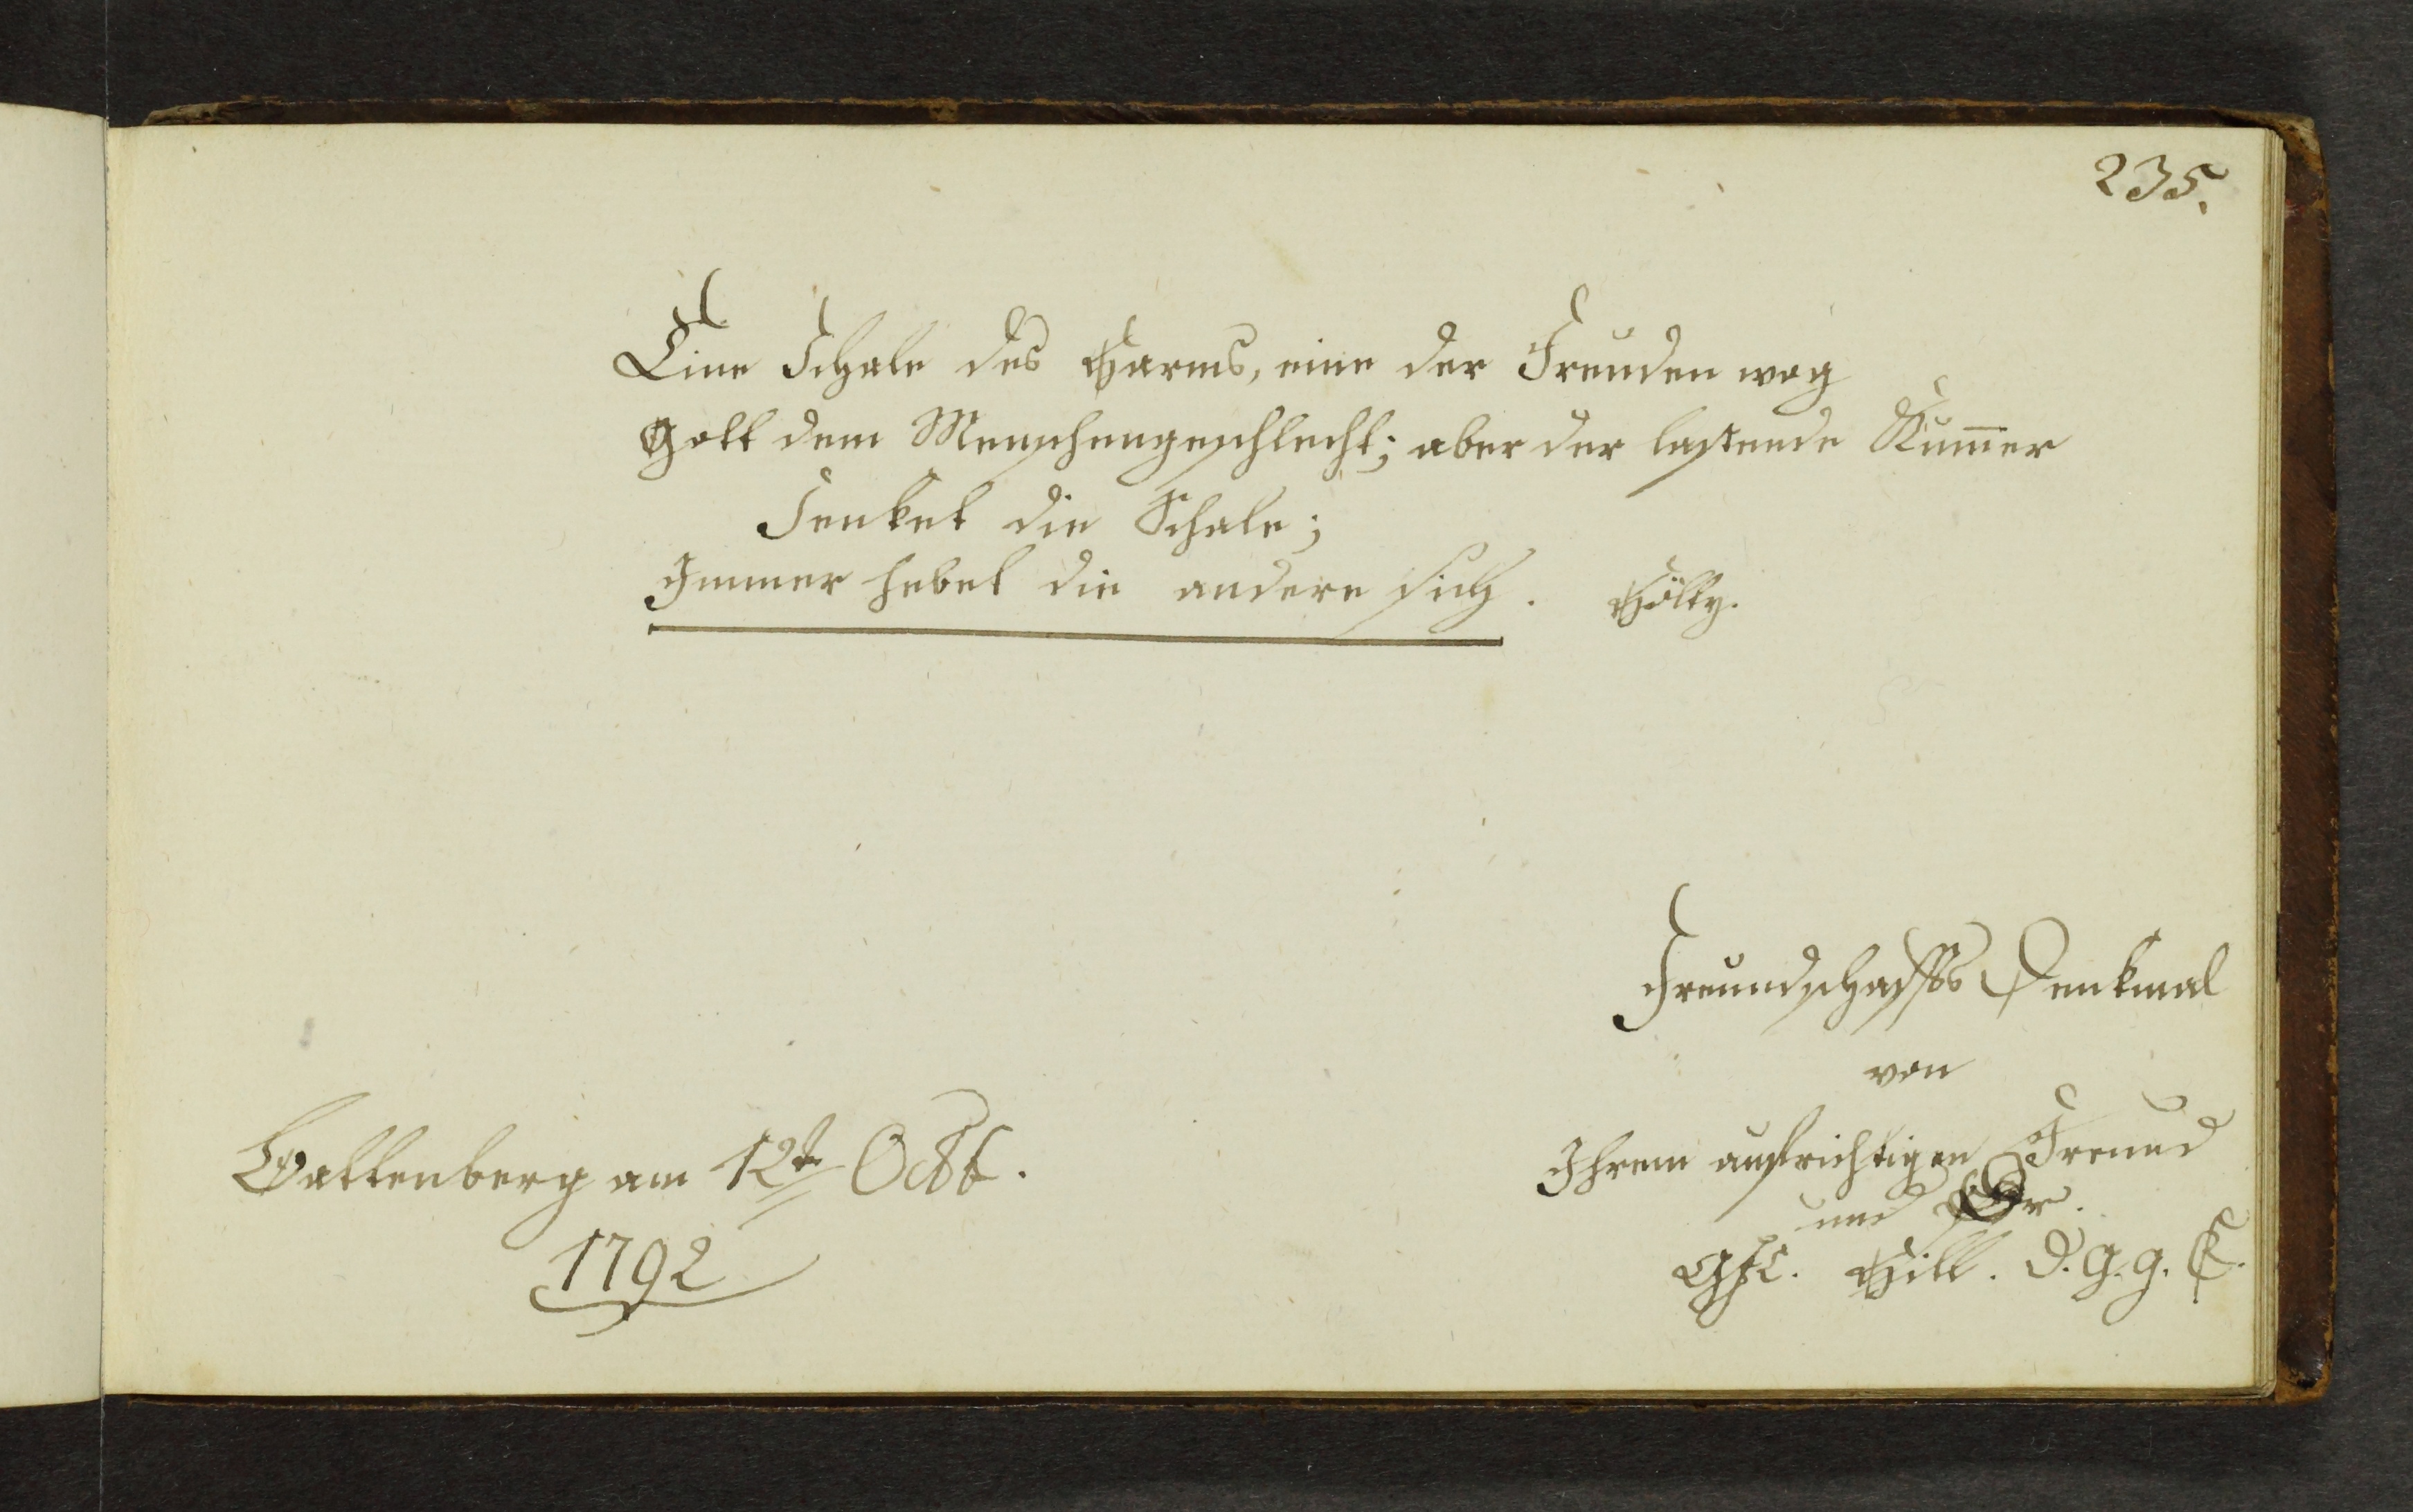 235.
Eine Schale des Harms, eine der Freuden wog
Gott dem Menschengeschlecht; aber der lastende Kum̅er
Senket die Schale;
Immer hebet die andere sich. Hölty.
Freundschaffts Denkmal
von
Ihrem aufrichtigen Freund
und Br.
Hill. d. G. g. E.
Battenberg am 12t Octb.
1792